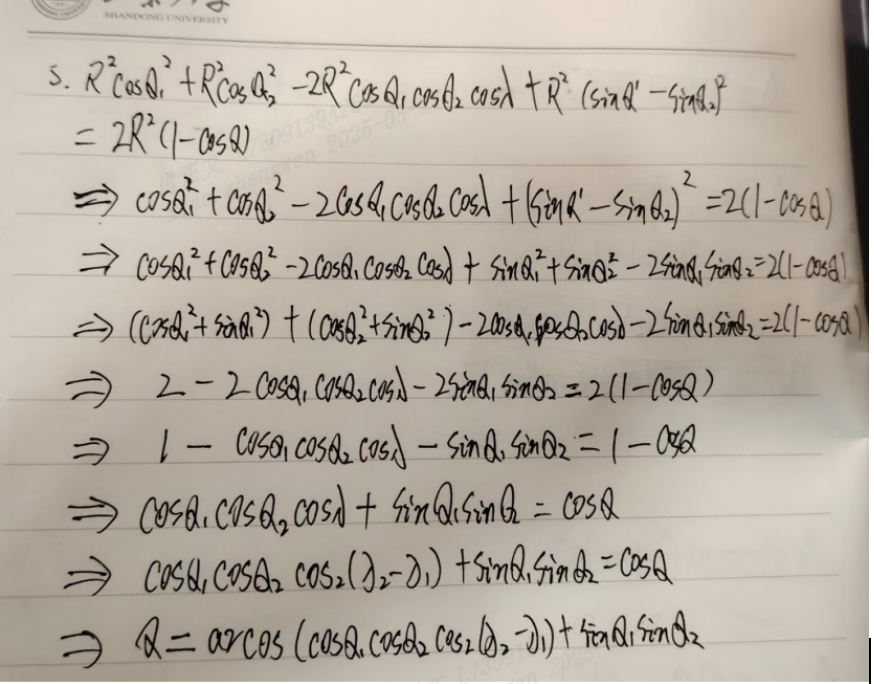 SHANDONG UNIVERSITY
5. R²cosθ₁² + R²cosθ₂² - 2R²cosθ₁cosθ₂cosλ + R²(sinθ' - sinθ₂)²
= 2R²(1-cosθ)
⇒ cosθ₁² + cosθ₂² - 2cosθ₁cosθ₂cosλ + (sinθ' - sinθ₂)² = 2(1-cosθ)
⇒ cosθ₁² + cosθ₂² - 2cosθ₁cosθ₂cosλ + sinθ₁² + sinθ₂² - 2sinθ₁sinθ₂ = 2(1-cosθ)
⇒ (cosθ₁² + sinθ₁²) + (cosθ₂² + sinθ₂²) - 2cosθ₁cosθ₂cosλ - 2sinθ₁sinθ₂ = 2(1-cosθ)
⇒ 2 - 2cosθ₁cosθ₂cosλ - 2sinθ₁sinθ₂ = 2(1-cosθ)
⇒ 1 - cosθ₁cosθ₂cosλ - sinθ₁sinθ₂ = 1 - cosθ
⇒ cosθ₁cosθ₂cosλ + sinθ₁sinθ₂ = cosθ
⇒ cosθ₁cosθ₂cos₂(λ₂-λ₁) + sinθ₁sinθ₂ = cosθ
⇒ θ = arcos(cosθ₁cosθ₂cos₂(λ₂-λ₁) + sinθ₁sinθ₂